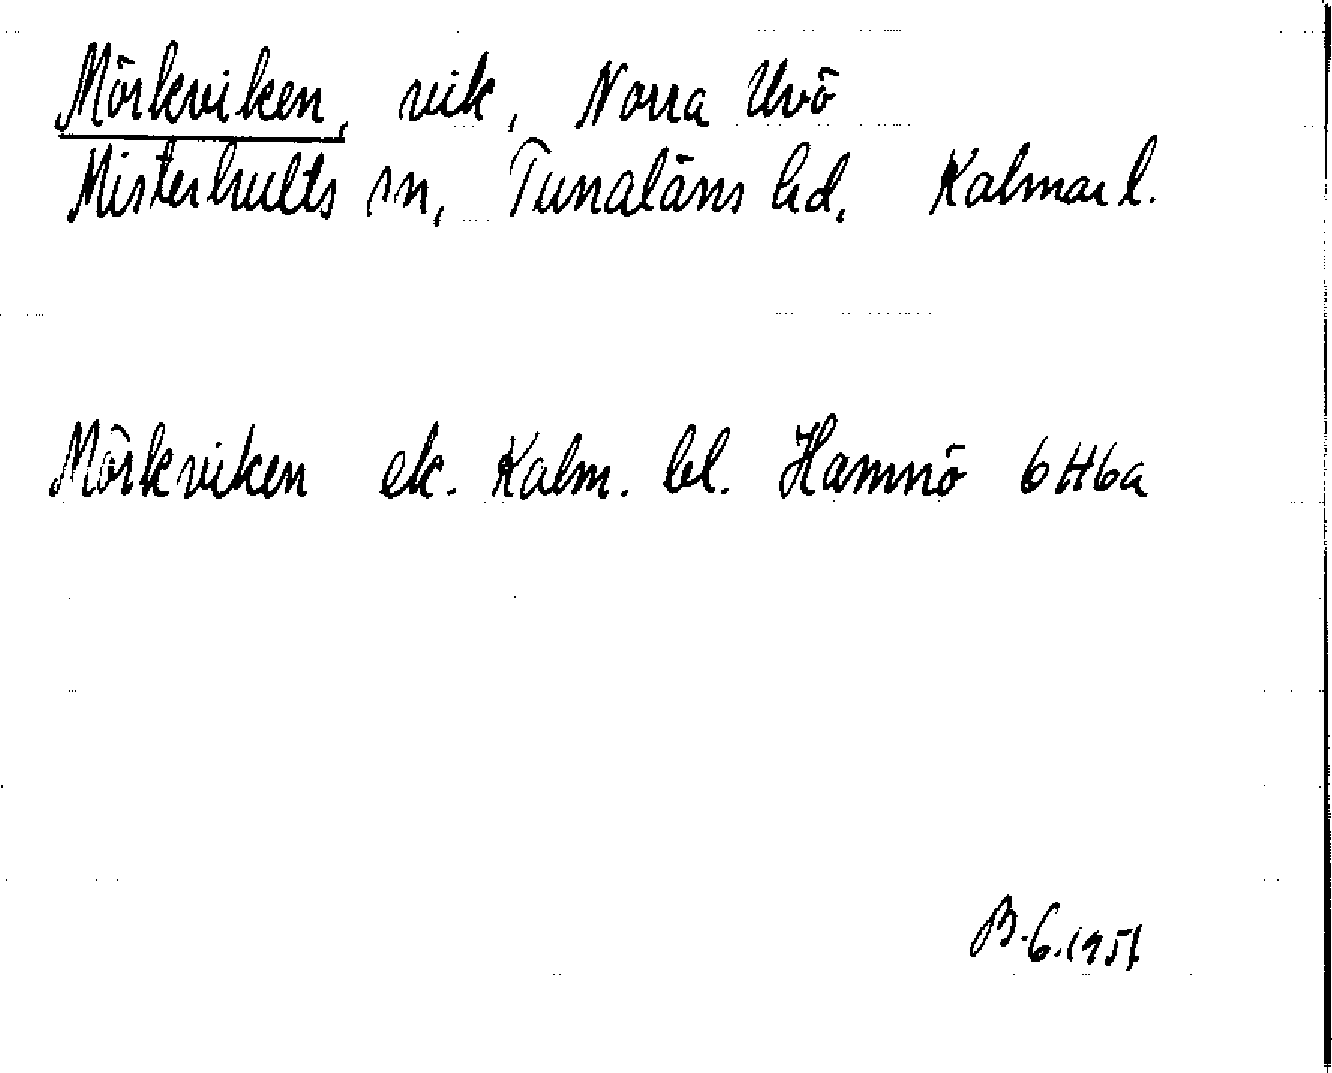 Mörkviken, vik, Norra Uvö
Misterhults sn, Tunaläns hd, Kalmar l.
Mörkviken ek. Kalm. bl. Hamnö 6H6a
B.G.1957